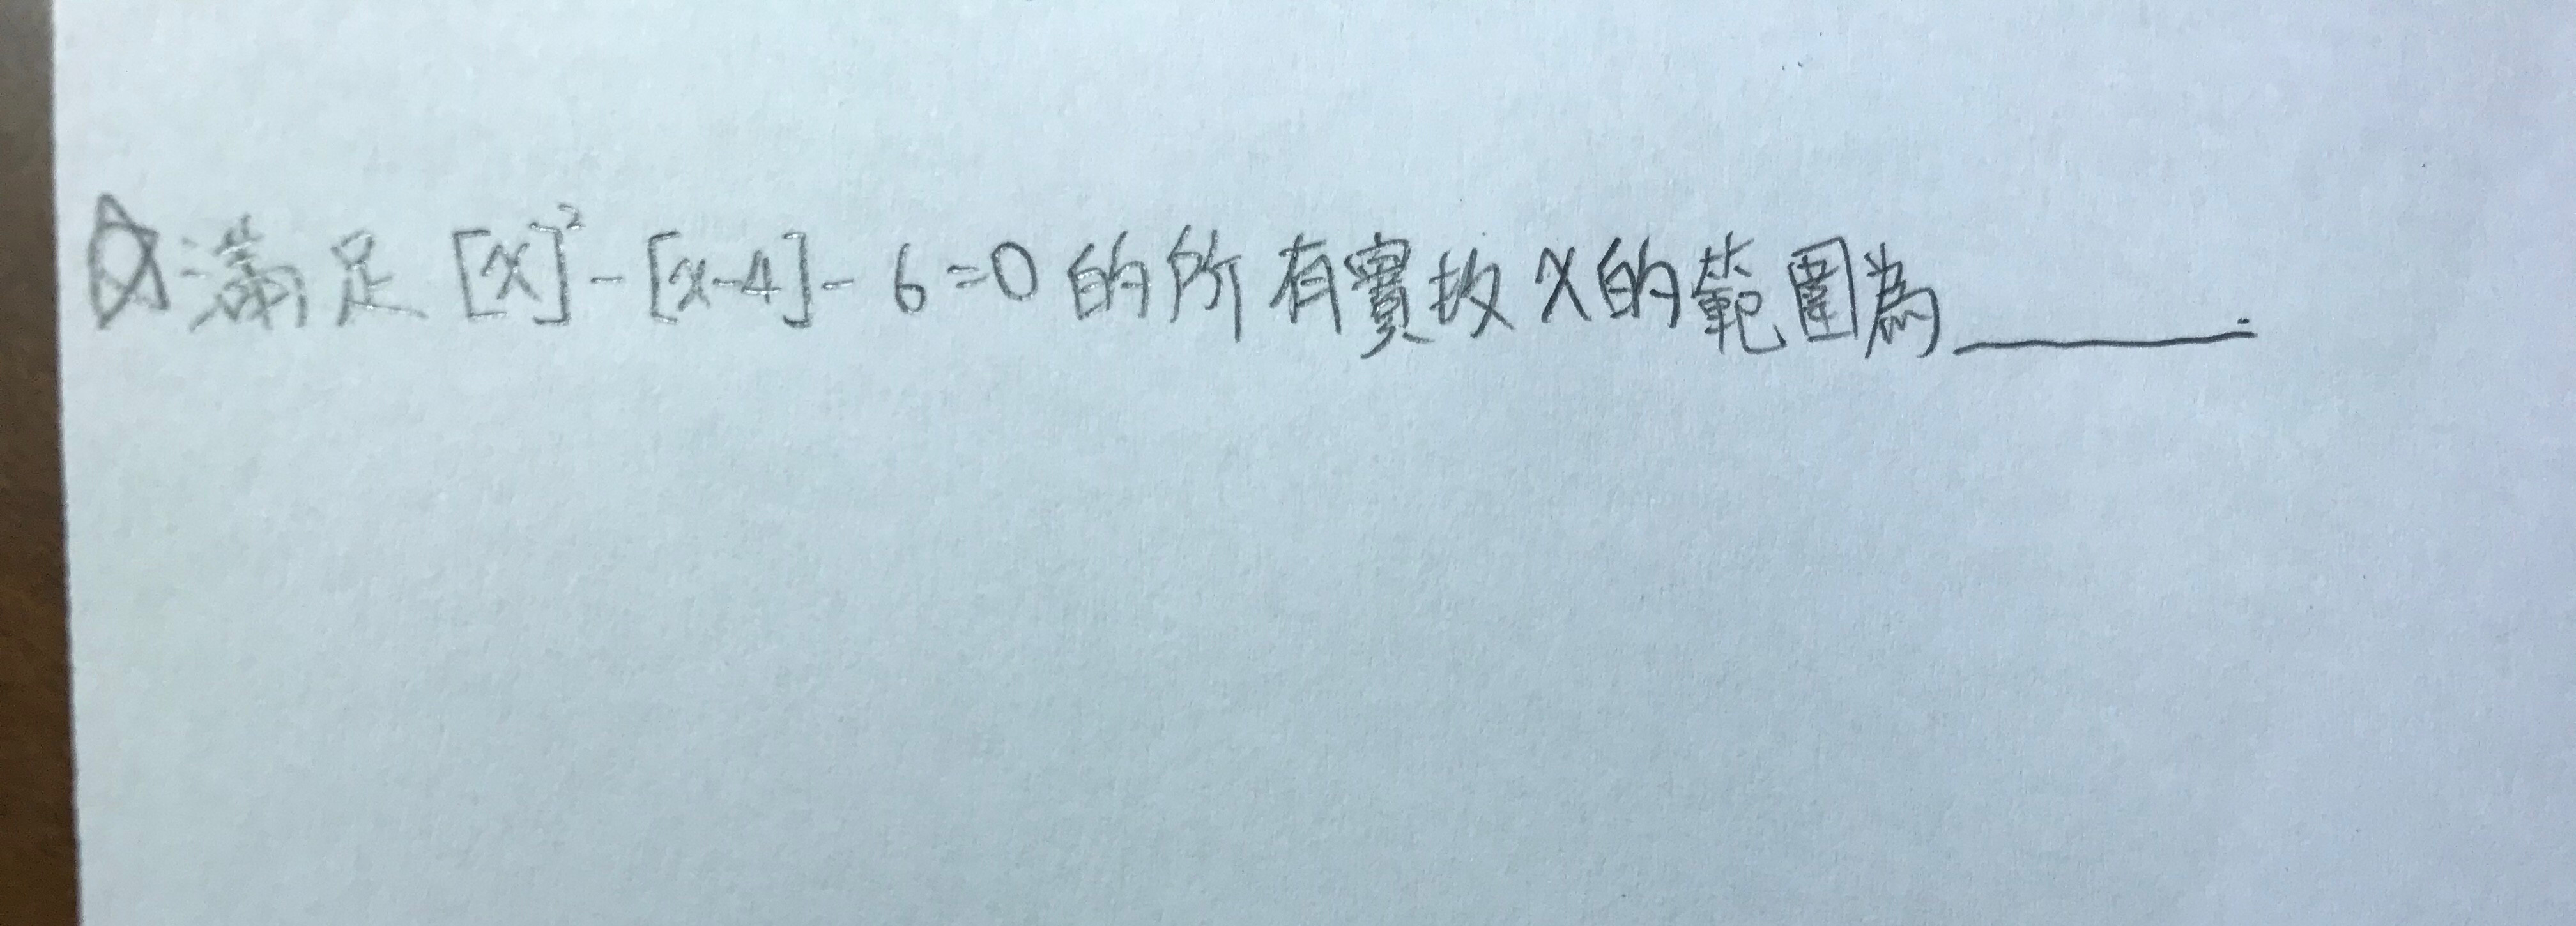 Q:滿足 [x]²-[x-4]-6=0 的所有實数 x 的範圍為______.